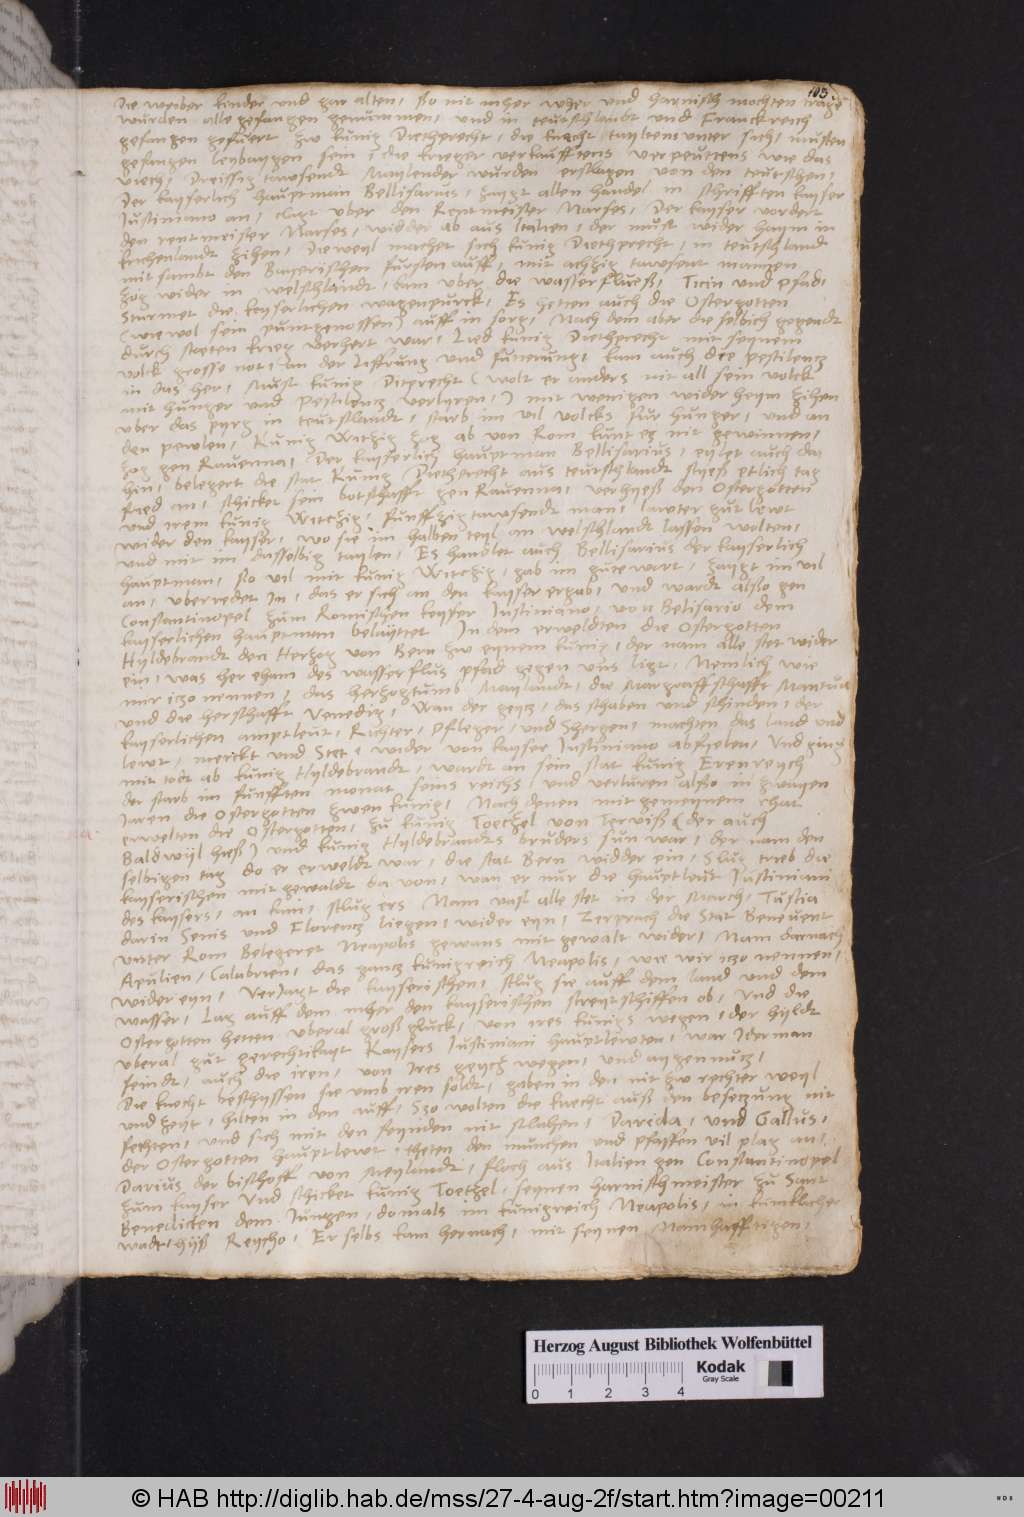 103
die weiber kinder und gar alten, so nit meher wher und harnisch mochten trage
wurden alle gefangen genummen, und in teutschlandt und Franckreich
gefangen gefuert zw kunig Diethprecht, die knecht taylten unter sich, musten
gefangen leybaygen sein, die krieger verkaufftens verpeuttens wie das
viech, Dreissig tawsendt Maylender wurden erslagen von den teutschen,
Der kayserlich hauptman Bellisarius, zaygt allen handel in schrifften kayser
Justiniano an, clagt uber den Rentmeister Narses, Der kayser vordert
den rentmeister Narses, wieder ab aus Italien, der must wider haym in
krichenlandt zihen, Dieweyl machet sich kunig Diethprecht, in teutschlandt
mit sambt den Bairischen fursten auff, mit achzig tawsent mannen
zog wider in welschlandt, kam uber die wasserfluess, Ticin und pfad,
Sturmet die keyserlichen wagenpurck, Es hetten auch die Ostergotten
(wiewol sein puntgenossen) auff in sorg, Nach dem aber die selbich gegendt
durch staeten krieg verhert war, Lied kunig Diethprecht mit seynem
volck grosse not, an der Liffrung und funerung, kam auch die pestilencz
in das her, Must kunig Ditprecht (wolt er anders nit all sein volck
mit hunger und Pestilentz verlyren,) mit wenigen wider heym zihen
uber das pyrg in teutslandt, starb im vil volcks fur hunger, und an
den pewlen, Kunig Witzig zog ab von Rom kunt es nit gewinnen,
zog gen Ravenna, Der kayserlich hauptman Bellisarius, eylet auch da
hin, belegert die stat Kunig Diethprecht aus teutschlandt styess etlich tag
fried an, schicket sein botschafft gen Ravenna, verhyess den Ostergotten
und irem kunig Witzig, funffzig tawsendt man, lawter gut lewt
wider den kayser, wo sie im halben teyl an welschlandt lassen wolten,
und mit im dasselbig taylen, Es handlet auch Bellisarius der kayserlich
hauptman, so vil mit kunig Witzig, gab im gute wort, zaygt im vil
an, uberredet in, das er sich an den kayser ergab, und wardt also gen
Constantinopel zum Romischen keyser Justiniano, von Belisario dem
kayserlichen hauptman belaytet In dem erweldten die Ostergotten
Hyldebrandt den Herzog von Bern zw eynem kunig, der nam alle stet wider
ein, was her eham des wasserflus pfad gegen uns ligt, Nemlich wie
mir iczo nennen, das herzogtumb Maylandt, die Margraffschafft Mantua
und die herschafft Venedig, Wan der geycz, das schaben und schinden, der
kayserlichen amptleut, Richter, Pfleger, und Schergen, machten das land und
lewt, merckt und Stet, wider von kayser Justiniano abfyelen, Und ging
mit todt ab kunig Hyldebrandt, wardt an sein stat kunig Erenreych
der starb im funfften monat seins reichs, und verluren also in zwayen
Jaren die Ostergotten zwen kunig, Nach denen mit gemeynem rhat
erwelten die Ostergotten, zu kunig Toechel von Terviss (der auch
Baldwyl hiess) und kunig Hyldebrandts bruders sun war, der nam den
selbigen tag do er erweldt war, die stat Bern widder ein, Slug trieb die
kayserischen mit gewaldt da von, wan er nur die hauptleut Justiniani
des kaysers, an kam, schlug ers Nam vast alle stet in der March, Tuscia
darin Senis und Florencz liegen, wider eyn, Zerprach die Stat Benevent
unter Rom Belegeret Neapolis gewans mit gewalt wider, Nam darnach
Apulien, Calabrien, das gancz kunigreich Neapolis, wie wir iczo nennen,
wider eyn, Verjagt die kayserischen, schlug sie auff dem land und dem
wasser, Lag auff dem meher den kayserischen streytschiffen ob, Und die
Ostergotten hetten uberal gross gluck, von ires kunigs wegen, der hyldt
uberal gut gerechtikayt Kaysers Justiniani hauptlewten, war Iderman
feindt, auch die iren, von ires geycz wegen, und aygennutz,
Die knecht beschyssen sie umb iren soldt, gaben in den nit zw rechter weyl
und zeyt, hilten in den auff, Szo wolten die knecht auss den beseczung nit
fechten, und sich mit den feynden nit schlahen, Darida, und Gallus,
der Ostergotten hauptlewt, theten den munchen und pfaffen vil plag an,
Darius der bischoff von Meylandt, floch aus Italien gen Constantinopel
zum kayser Und schicket kunig Toechel, seynen harnischmeister zu Sant
Benedicten dem Jungen, domals im kunigreich Neapolis, in kunklicher
wadt, hyess Reycho, Er selbs kam hernach, mit seynen Mannhafftigen,
Herzog August Bibliothek Wolfenbüttel
Kodak
Gray Scale
0 1 2 3 4
© HAB http://diglib.hab.de/mss/27-4-aug-2f/start.htm?image=00211